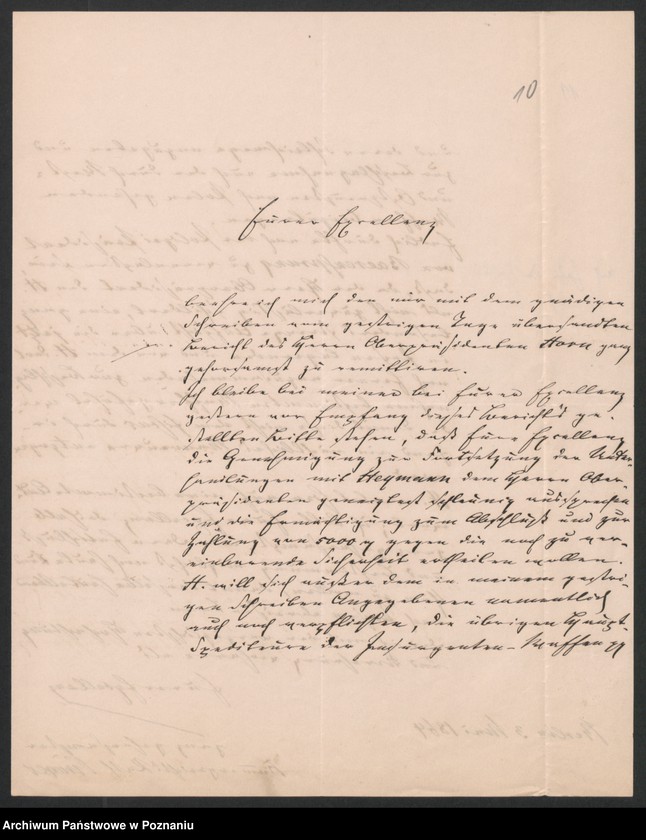 10
Eurer Excellenz
beehre ich mich den mir mit dem gnädigen
Schreiben vom gestrigen Tage übersandten
Bericht des Herrn Oberpräsidenten Horn ganz
gehorsamst zu remittiren.
Ich bleibe bei meiner bei Eurer Excellenz
gestern vor Empfang dieses Berichts ge-
stellten Bitte stehen, daß Eure Excellenz
die Genehmigung zur Fortsetzung der Unter-
handlungen mit Heymann dem Herrn Ober-
präsidenten geneigtest schleunig aussprechen
und die Ermächtigung zum Abschluß und zur
Zahlung von 5000 gegen die noch zu ver-
einbarende Sicherheit ertheilen wollen.
H. will sich außer dem in meinem gestri-
gen Schreiben Angegebenen namentlich
auch noch verpflichten, die übrigen Haupt-
Spediteure der Insurgenten-Waffen
Archiwum Państwowe w Poznaniu